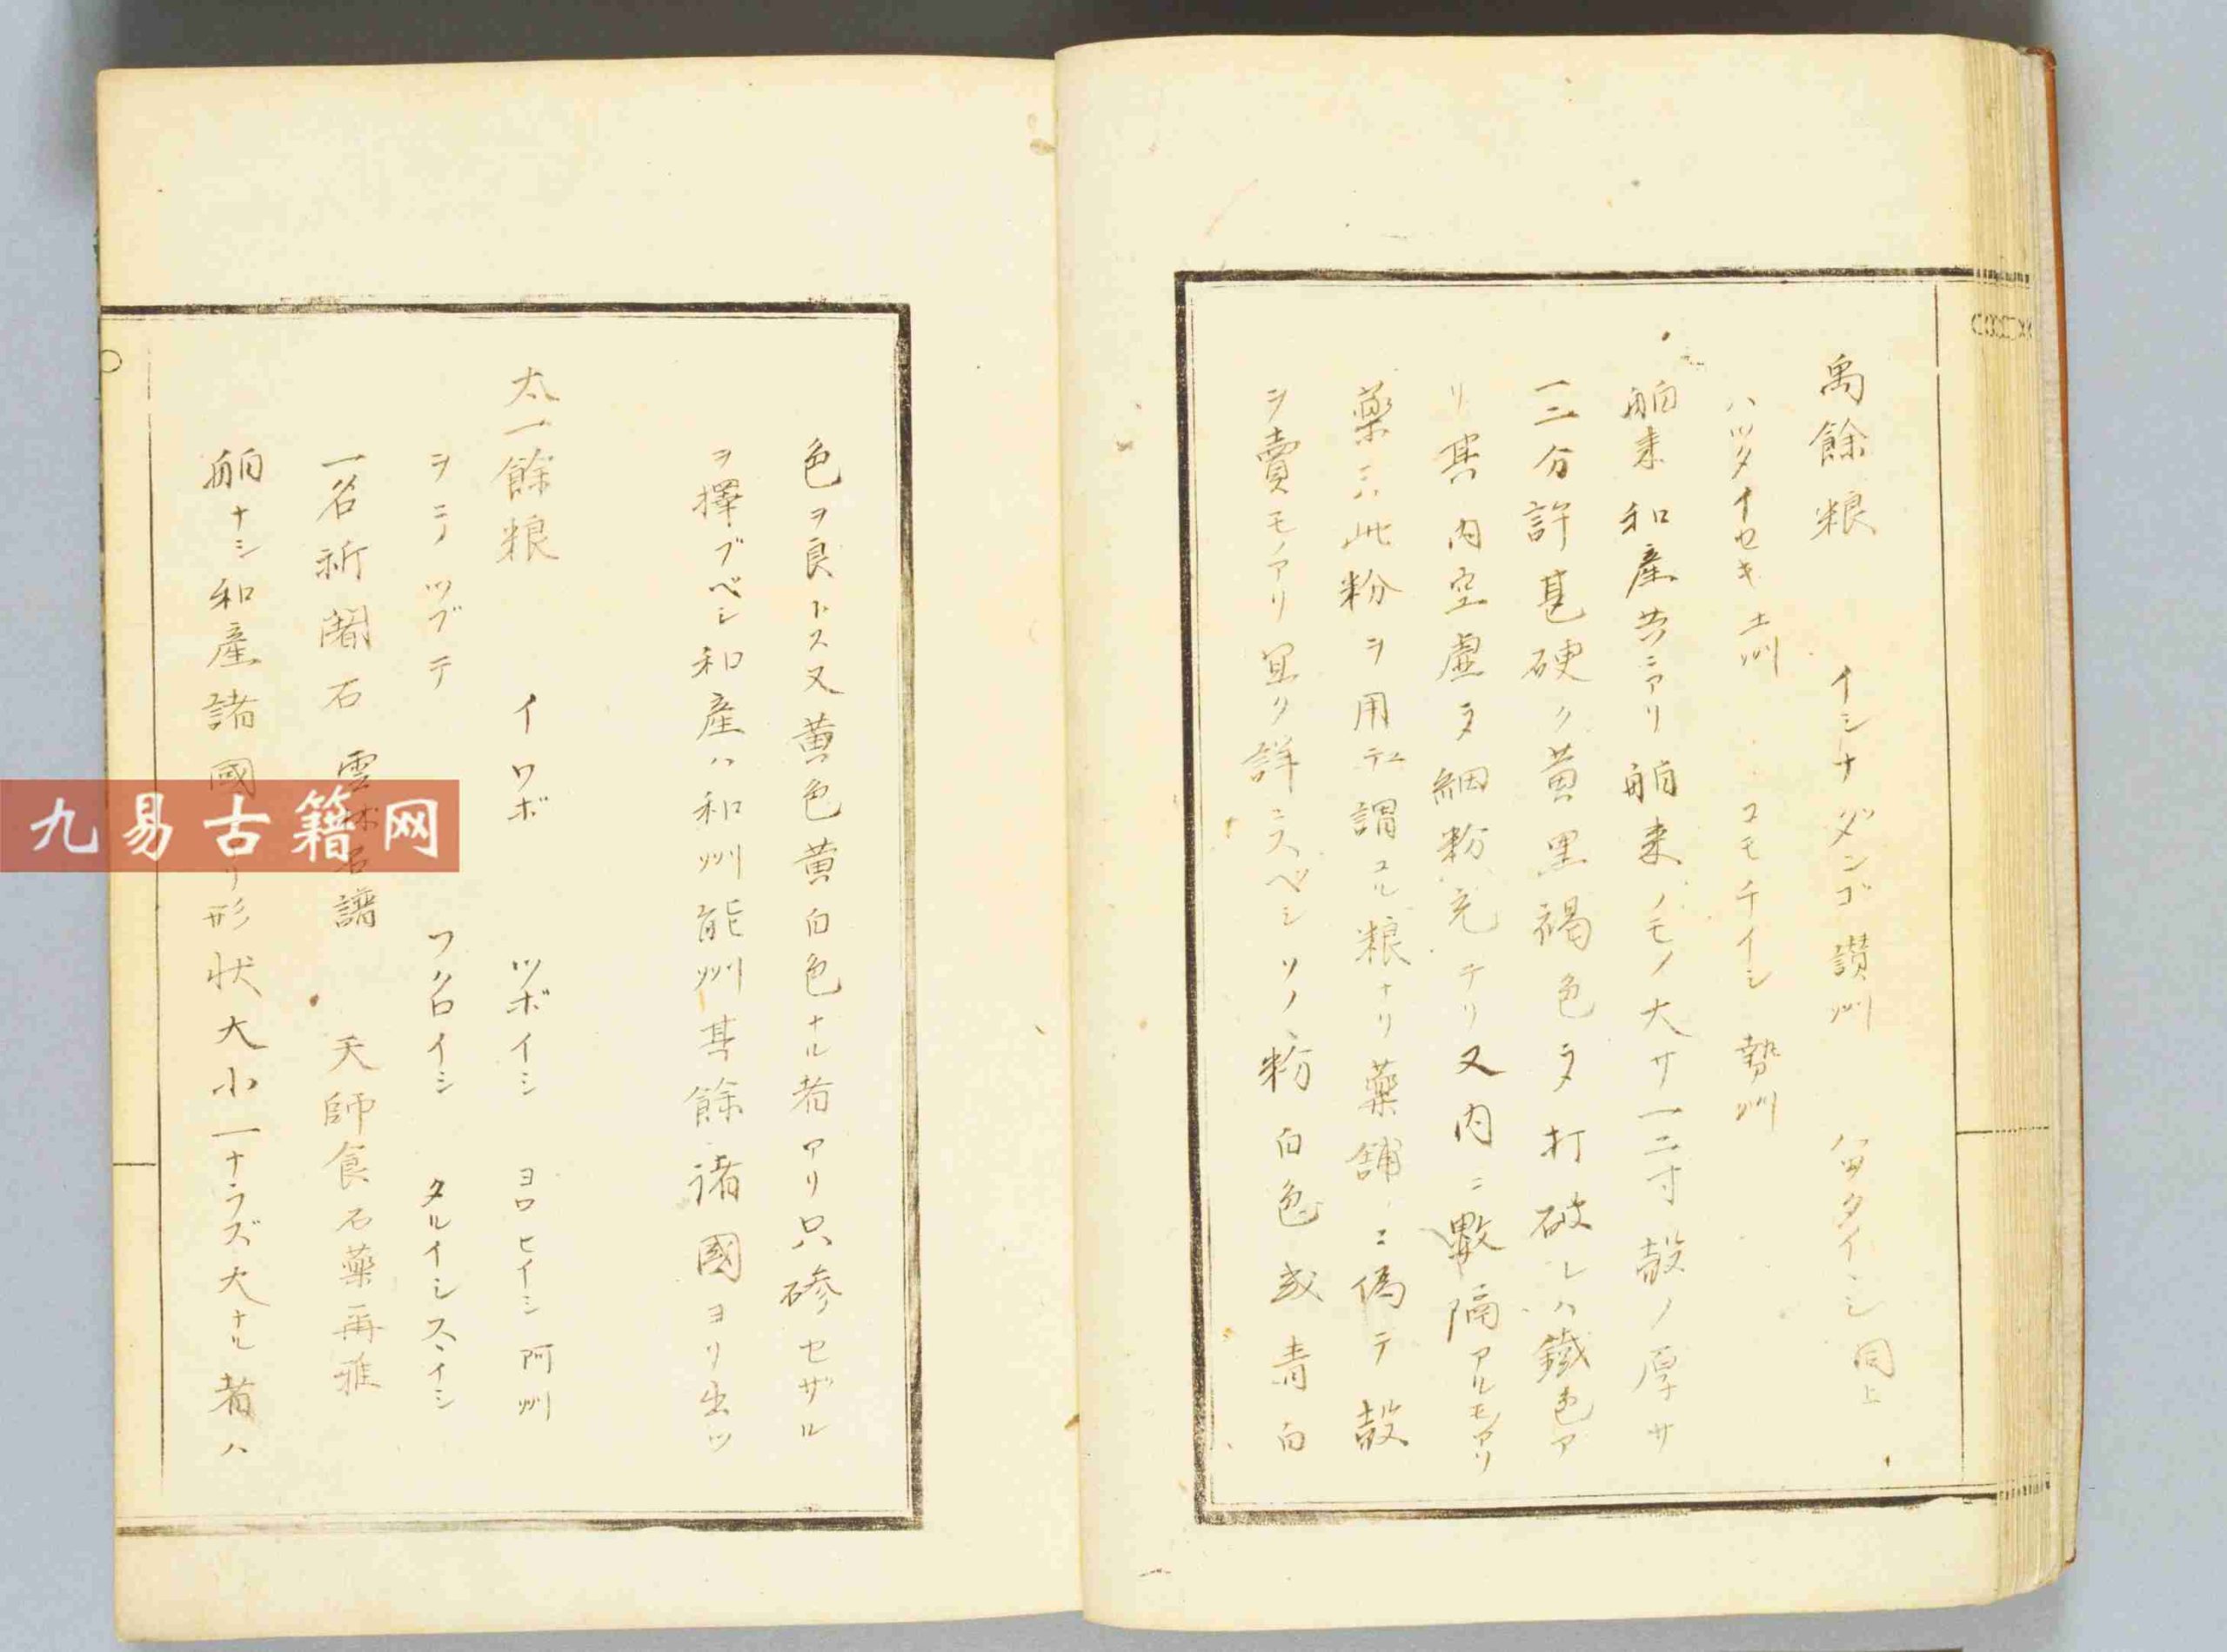 禹餘粮 イシナダンゴ 讃州 ハツタイイシ 同上
ハツタイセキ 土州 コモチイシ 勢州
舶来和産共ニアリ舶来ノモノ大サ一二寸殻ノ厚サ
一二分許甚硬ク黄黒褐色ヲ打破レハ鐵色ア
リ其内空虚ヲ細粉充テリ又内ニ數隔アルモアリ
藥ニハ此粉ヲ用謂ユル粮ナリ藥舗ニ偽テ殻
ヲ賣モノアリ宜ク詳ニスベシソノ粉白色或青白
色ヲ良トス又黄色黄白色ナル者アリ只磣セザル
ヲ擇ブベシ和産ハ和州能州其餘諸國ヨリ出ツ
太一餘粮 イワボ ツボイシ ヨロヒイシ 阿州
ヲニノツブテ フクロイシ タルイシ スヽイシ
一名 石 雲林石譜 天師食 石藥爾雅
舶ナシ和産諸國 リ形状大小一ナラズ大ナル者ハ
九易古籍网